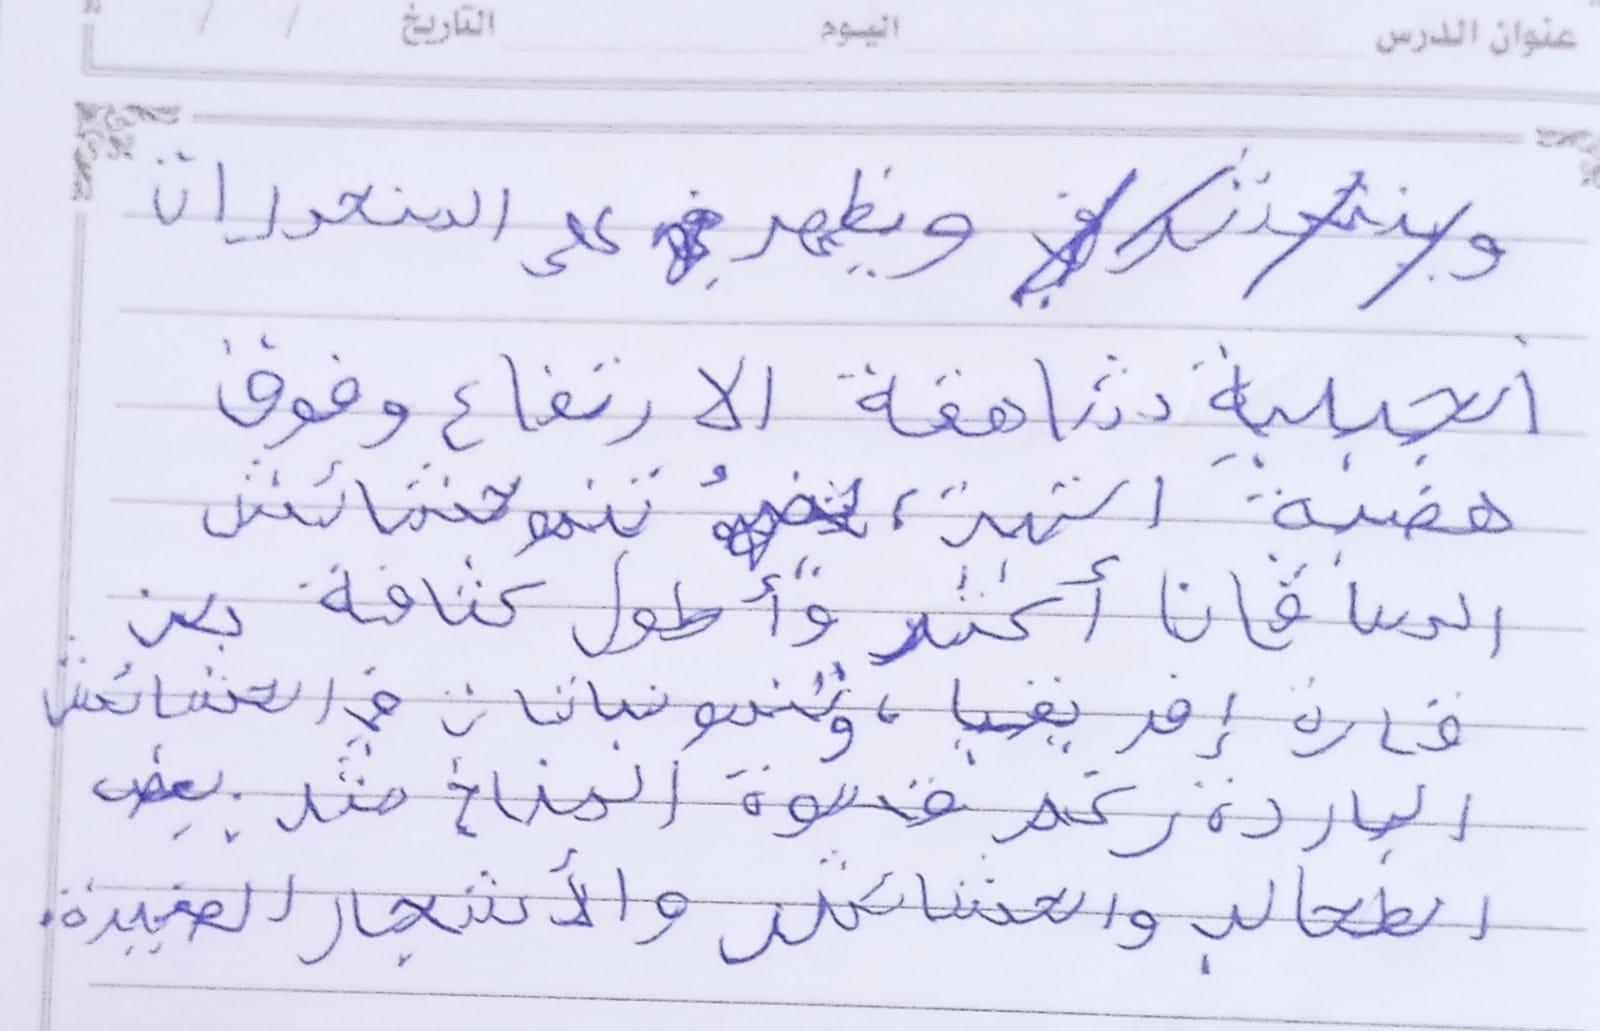 عنوان الدرس اليوم التاريخ / /
ويظهر على المنحدرات
الجبلية شاهقة الارتفاع وفوق
هضبة التبت، تنمو حشائش
السافانا أكثر وأطول كثافة بين
قارة إفريقيا، وتنمو نباتات في الحشائش
الباردة رغم قسوة المناخ مثل بعض
الطحالب والحشائش والأشجار الصغيرة.